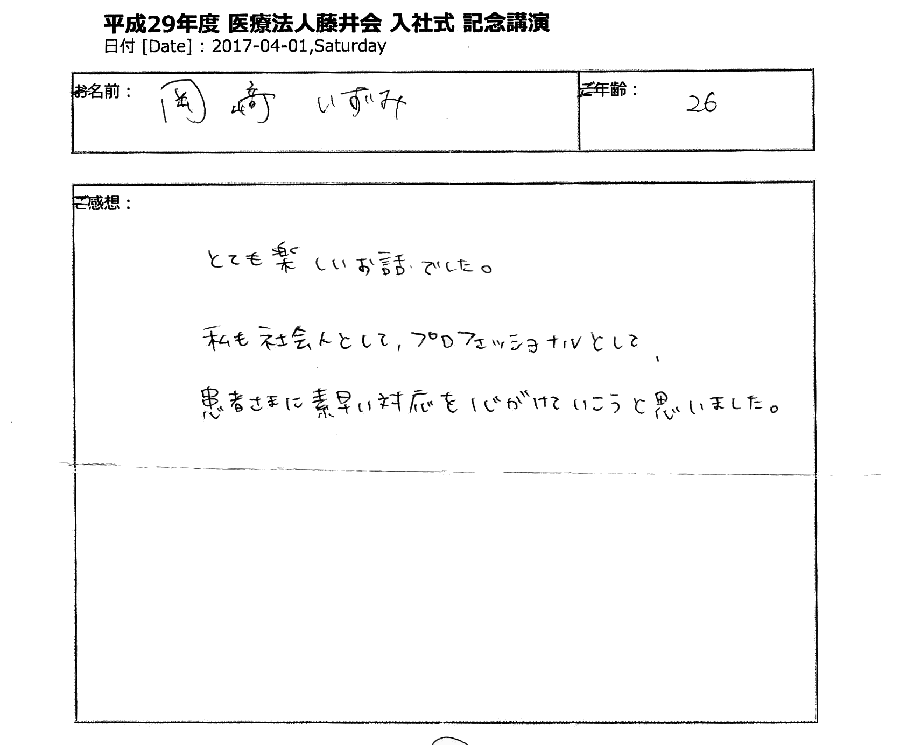 平成29年度 医療法人藤井会 入社式 記念講演
日付 [Date] : 2017-04-01,Saturday
お名前： 岡﨑 いずみ
ご年齢： 26
ご感想：
とても楽しいお話でした。
私も社会人として、プロフェッショナルとして、
患者さまに素早い対応を心がけていこうと思いました。